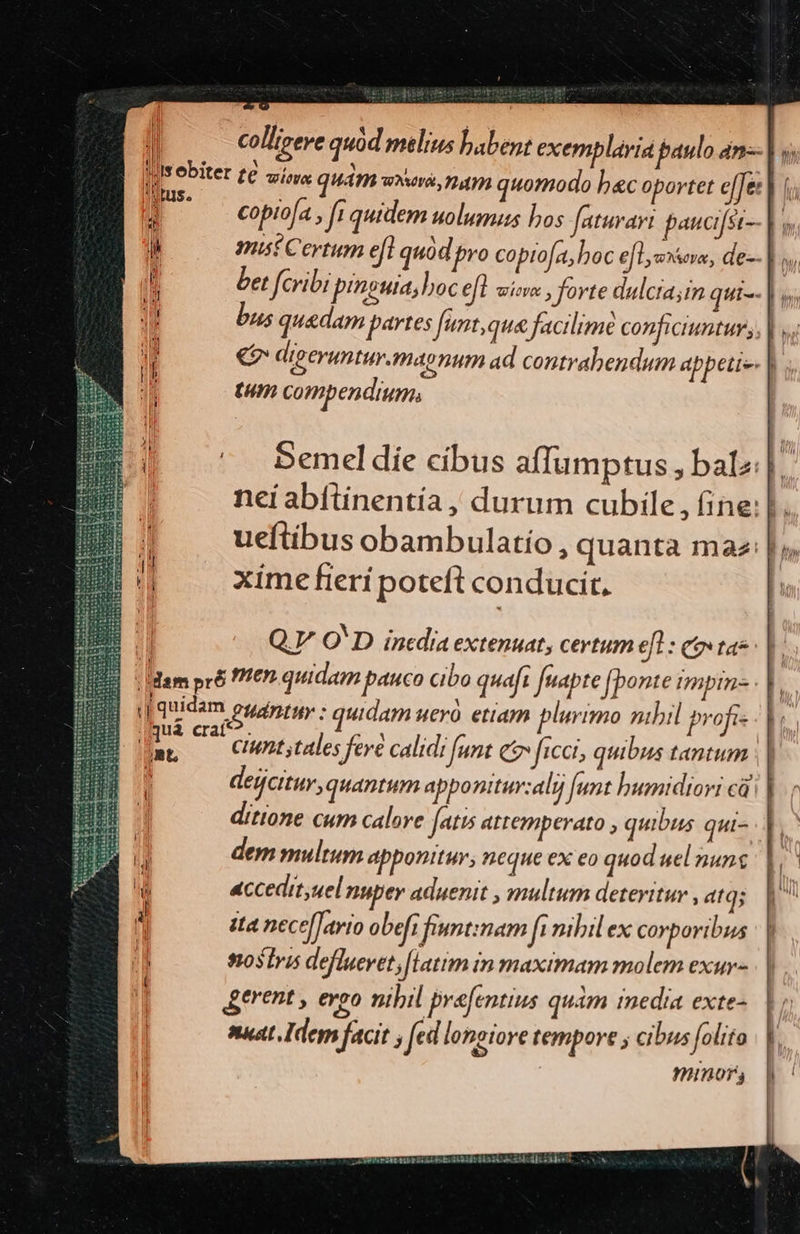 colligere quòd melius habent exemplaria paulo an-
te πίονα quàm πλείονα, nam quomodo hæc oportet esse
copiosa, si quidem uolumus hos saturari paucissi-
mis? Certum est quòd pro copiosa, hoc est, πλείονα, de-
bet scribi pinguia, hoc est πίονα, forte dulcia, in qui-
bus quædam partes sunt, quæ facilimè conficiuntur,
& digeruntur. magnum ad contrahendum appeti-
tum compendium.
Semel die cibus assumptus, bal=
nei abstinentia, durum cubile, sine
uestibus obambulatio, quanta ma=
xime fieri potest conducit.
QVÒD inedia extenuat, certum est: & ta=
men quidam pauco cibo quasi suapte sponte impin=
guantur: quidam uerò etiam plurimo nihil profi=
ciunt, tales ferè calidi sunt & sicci, quibus tantum
deijcitur, quantum apponitur: alij sunt humidiori cõ
ditione cum calore satis attemperato, quibus qui-
dem multum apponitur, neque ex eo quod uel nunc
accedit, uel nuper aduenit, multum deteritur, atq;
ita necessario obesi fiunt: nam si nihil ex corporibus
nostris deflueret, statim in maximam molem exur-
gerent, ergo nihil præsentius quàm inedia exte-
nuat. Idem facit, sed longiore tempore, cibus solito
minor,
obiter
tus.
quidam